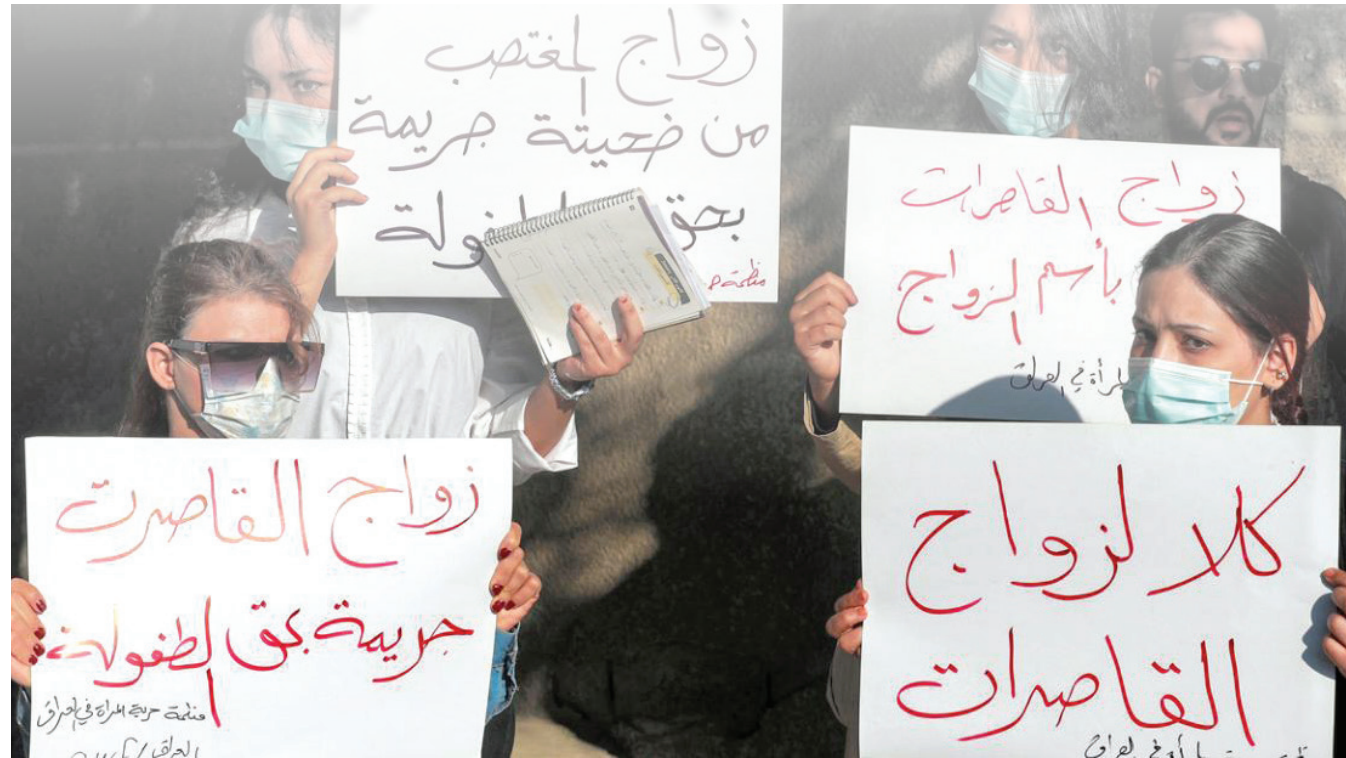 زواج المغتصب
من ضحيتة جريمة
بحق
منظمة
زواج القاصرات
بأسم الزواج
المرأة في العراق
زواج القاصرت
جريمة بحق الطفولة
منظمة حرية المراة في العراق
العراق
كلا لزواج
القاصرات